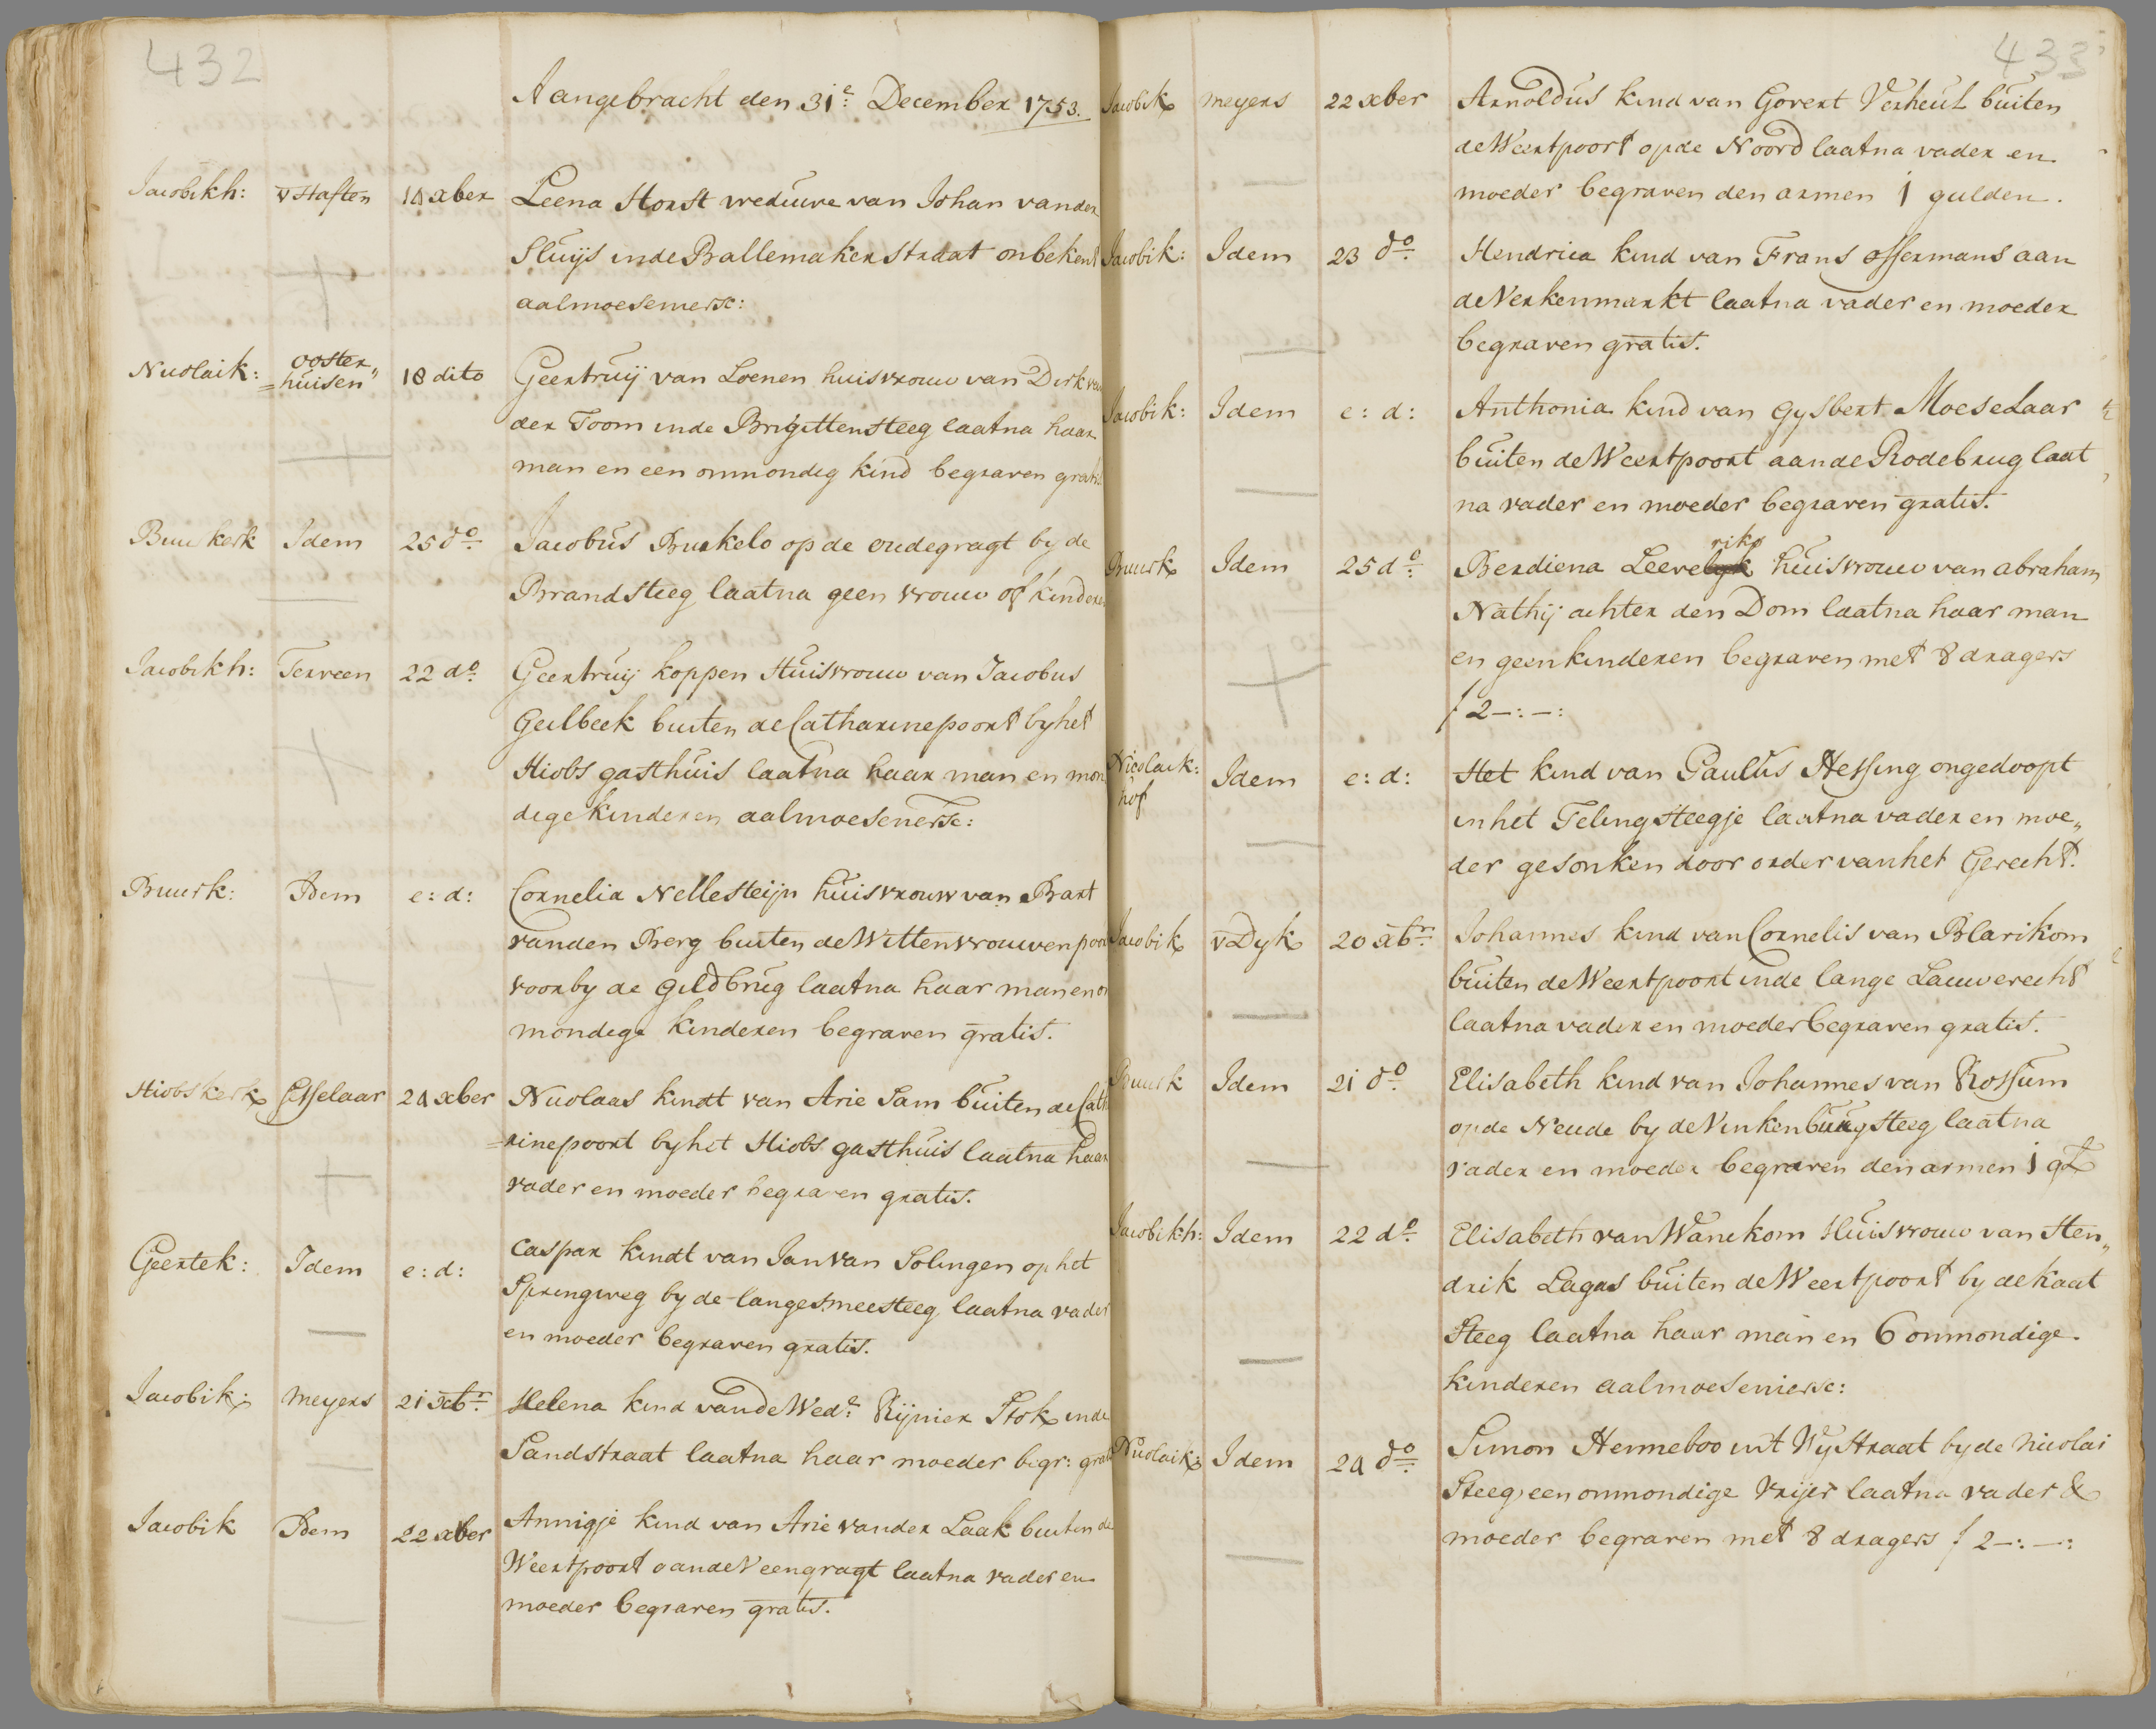 432
Aangebracht den 31e: December 1753.
Jacobikh: v Haften 14 xber Leena Horst weduwe van Johan vander
Sluijs inde Ballemakerstraat onbekent
aalmoesenierse:
Nicolaik: ooster„
=huisen 18 dito Geertruij van Loenen huisvrouw van Dirk van
der Toom inde Brigittensteeg laatna haar
man en een onmondig kind begraven gratis
Buurkerk Idem 25 do. Jacobus Burkelo op de oudegragt by de
Brandsteeg laatna geen vrouw of kinderen
Jacobikh: Terveen 22 do. Geertruij koppen Huisvrouw van Jacobus
Geilbeek buiten de Catharinepoort by het
Hiobs gasthuis laatna haar man en mon
dige kinderen aalmoesenierse:
Buurk: Idem e: d: Cornelia Nellesteijn huisvrouw van Bart
vanden Berg buiten de Wittenvrouwenpoort
voorby de gildbrug laatna haar man en on
mondige kinderen begraven gratis.
Hiobskerk Esselaar 24 xber Nicolaas kindt van Arie Sam buiten de Catha
=rinepoort by het Hiobs gasthuis laatna haar
vader en moeder begraven gratis.
Geertek: Idem e: d: Caspar kindt van Jan van Solingen op het
Springweg by de langesmeesteeg laatna vader
en moeder begraven gratis.
Jacobik: meyers 21 xbr. Helena kind vande Wede. Rijnier Stok inde
Sandstraat laatna haar moeder begr: gratis
Jacobik Idem 22 xber Annigje kind van Arie vander Laak buiten de
Weertpoort aande Veengragt laatna vader en
moeder begraven gratis.
433
Jacobik meyers 22 xber Arnoldus kind van Govert Verheul buiten
de Weertpoort op de Noord laatna vader en
moeder begraven den armen 1 gulden.
Jacobik: Idem 23 do. Hendrica kind van Frans Offermans aan
de Verkenmarkt laatna vader en moeder
begraven gratis.
Jacobik: Idem e: d: Anthonia kind van Gysbert Moeselaar
buiten de Weertpoort aande Rodebrug laat
na vader en moeder begraven gratis.
riks
Buurk Idem 25 do: Berdiena Leevelyk huisvrouw van abraham
Nathij achter den Dom laatna haar man
en geen kinderen begraven met 8 dragers
f 2—:—:
Nicolaik:
hof Idem e: d: Het kind van Paulus Hessing ongedoopt
in het Telingsteegje laatna vader en moe„
der gesonken door order van het Gerecht.
Jacobik v Dyk 20 xbr. Johannes kind van Cornelis van Blarikom
buiten de Weertpoort inde lange Lauwerecht
laatna vader en moeder begraven gratis.
Buurk Idem 21 do. Elisabeth kind van Johannes van Rossum
op de Neude by de Vinkenburgsteeg laatna
vader en moeder begraven den armen 1 gl
Jacobikh: Idem 22 do. Elisabeth van Wanekom Huisvrouw van Hen„
drik Lagas buiten de Weertpoort by de kaat
Steeg laatna haar man en 6 onmondige
kinderen aalmoesenierse:
Nicolaik: Idem 24 do. Simon Henneboo int Wystraat by de Nicolai
Steeg een onmondige Vrijer laatna vader &
moeder begraven met 8 dragers f 2—:—: